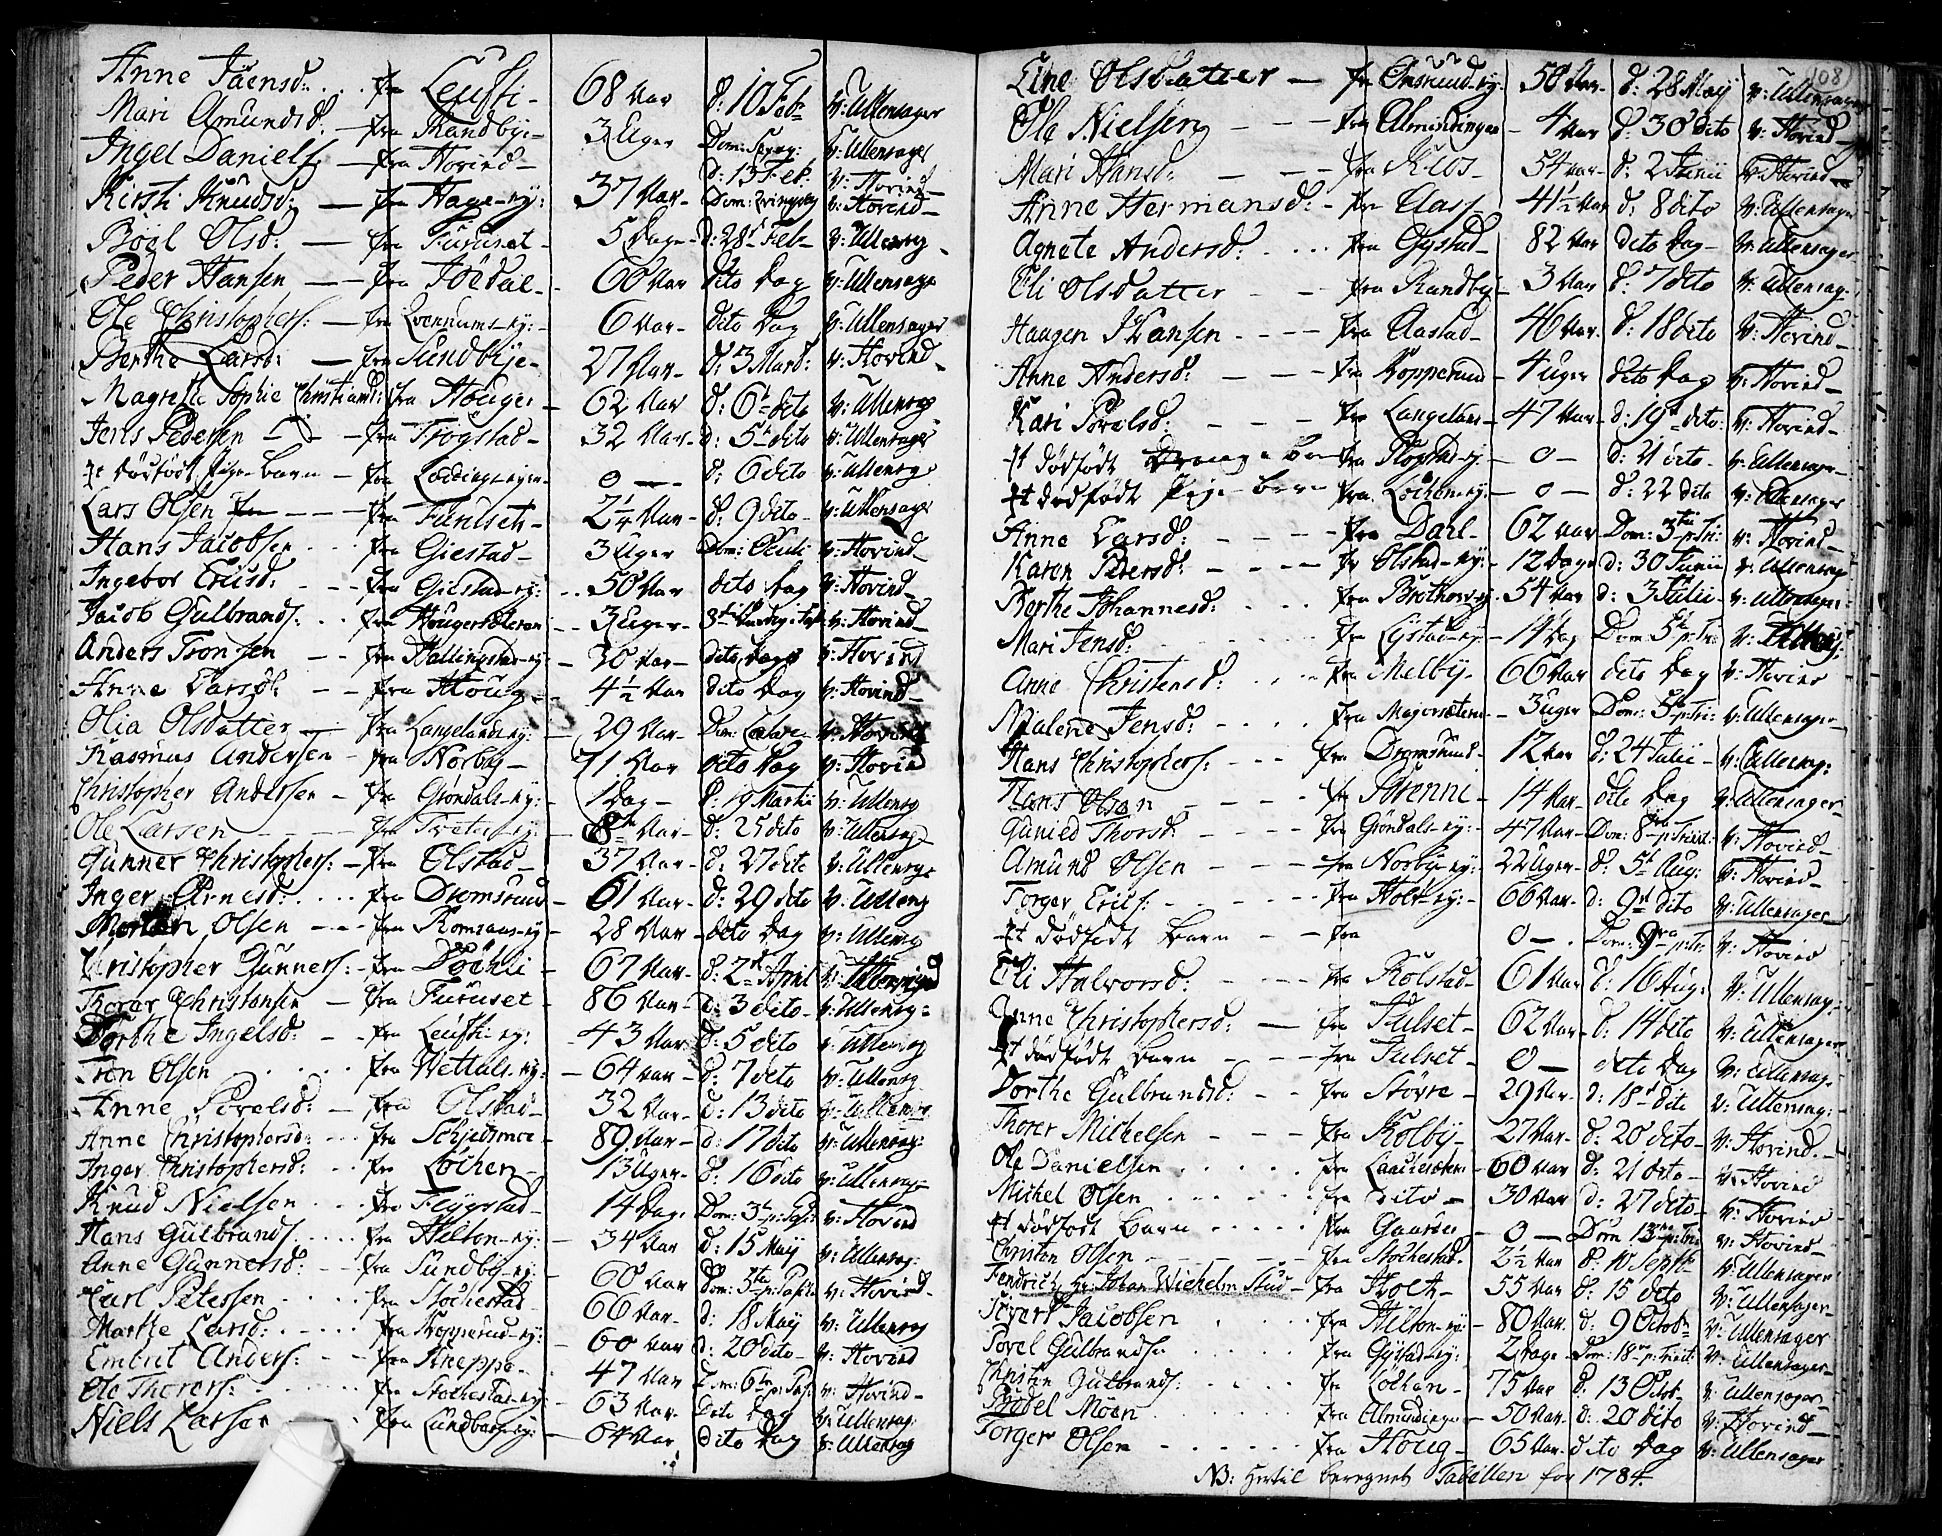 Anne Jaensd: fra Leufti 68 Aar d: 10 Feb v: Ullensager
Mari Amundsd. fra Randbye 3 Uger Dom: v: Ullensager
Ingel Daniels fra Hovind d: 13 Feb. v: Hovind
Kirsti Knudsd: fra Hage-ey: 37 Aar v: Hovind
Bøel Olsd: fra Furuset 5 Dage d: 28 Feb v: Ullensag
Peder Hansen fra Joedal 60 Aar dito Dag v: Ullensager
Ole Christophers: fra 6 Aar dito Dag v: Ullensager
Berthe Larsd: fra Sundbye 27 Aar d: 3 Marti: v: Hovind
Magrethe Sophie Christiansd: fra Houger 62 Aar d: 6 dito v: Ullensag
Jens Pedersen fra Trøgstad 32 Aar d: 5 dito v: Ullensager
Et dødfødt Pige barn fra 0 d: 6 dito v: Ullensag
Lars Olsen fra Furuset 2 1/4 Aar d: 9 dito v: Ullensager
Hans Jacobsen fra Giestad 3 Uger Dom: Oculi v: Hovind
Ingebor Ericsd: fra Giestad-ey: 50 Aar dito Dag v: Hovind
Jacob Gulbrands: fra 3 Uger v: Hovind
Anders Tronsen fra 30 Aar dito Dag v: Hovind
Anne Larsd: fra Houg 4 1/2 Aar dito Dag v: Hovind
Olia Olsdatter fra Langeland-ey: 29 Aar Dom: v: Hovind
Rasmus Andersen fra Norbye 71 Aar dito Dag v: Hovind
Christopher Andersen fra Grøndals-ey: 1 Dag d: 19 Martii v: Ullensag
Ole Larsen fra Tveter-ey: 8 Aar d: 25 dito v: Ullensag
Gunner Christophers: fra Olstad 37 Aar d: 27 dito v: Ullensag
Inger Arnesd: fra Dromsrud 61 Aar d: 29 dito v: Ullensag
Morten Olsen fra Romsaas-ey 28 Aar dito Dag v: Ullensag
Christopher Gunners: fra Døhli 67 Aar d: 2 April v:
Thorer Christensen fra Furuset 86 Aar d: 3 dito v: Ullensag:
Dorthe Ingelsd: fra Leufti-ey: 43 Aar d: 5 dito v: Ullensag
Tron Olsen fra Wettals-ey: 64 Aar d: 7 dito v: Ullensag
Anne Povelsd: fra Olstad 32 Aar d: 13 dito v: Ullensag
Anne Christophersd: fra Schjedsmoe 89 Aar d: 17 dito v: Ullensag:
Inger Christophersd: fra Løchen 13 Uger d: 16 dito v: Ullensag
Knud Nielsen fra Flygstad 14 Dage Dom: 3 p: Pasc: v: Hovind
Hans Gulbrands. fra Helton-ey: 34 Aar d: 15 May v: Ullensag:
Anne Gunnersd: fra Sundby-ey: 60 Aar Dom: 5ta p: Pasc: v: Hovind
Carl Petersen fra Stochestad 66 Aar d: 18 May v: Ullensag
Marthe Larsd: fra Kopperud-ey: 60 Aar d: 20 dito v: Hovind
Embrit Anders: fra Kneppe 47 Aar Dom: 6te p: Pasc: v: Hovind
Ole Thorers: fra Stochestad-ey: 63 Aar Dito Dag v: Ullensag:
Niels Larsen fra Sundbye-ey: 64 Aar dito Dag v: Ullensag
108
Eine Olsdatter fra Onsrud-ey: 50 Aar d: 28 May v: Ullensager
Ole Nielsen fra Almindingen 4 Aar d: 30 dito v: Hovind
Mari Hansd: fra Kros 54 Aar d: 2 Junii v: Hovind
Anne Hermansd: fra Aass 41 1/2 Aar d: 8 dito v: Ullensager
Agnete Andersd: fra Gystad 82 Aar dito Dag v: Ullensager
Eli Olsdatter fra Randbye 3 Aar d: 7 dito v: Ullensag:
Haagen Hansen fra Aastad 46 Aar d: 18 dito v: Hovind
Anne Andersd: fra Kopperud 4 Uger dito Dag v: Hovind
Kari Povelsd: fra Langeland 47 Aar d: 19 dito v: Hovind
Et dødfødt Drenge barn fra 0 d: 21 dito v: Ullensager
Et dødfødt Pige barn fra Løchen-ey: 0 d: 22 dito v: Ullensager
Anne Larsd: fra Dahl 62 Aar Dom: 3tia p: Tri: v: Hovind
Karen Pedersd: fra Olstad-ey: 12 Dage d: 30 Junii v: Ullensag
Berthe Johannesd: fra 54 Aar d: 3 Julii v: Ullensager
Mari Jensd: fra Gystad-ey 14 Dag Dom: 5t p: Tr: v:
Anne Christensd: fra Melby 66 Aar dito Dag v: Hovind
Malene Jensd: fra Majorsæteren 3 Uger Dom: 5 p: Tri: v: Ullensager
Hans Christophers: fra Dromsrud 12 Aar d: 24 Julii v: Ullensag:
Hans Olsen fra Brenni 14 Aar dito Dag v: Ullensager
Gunild Thorsd: fra Grøndals-ey: 47 Aar Dom: 8 p: Trinit: v: Hovind
Amund Olsen fra Norby-ey: 22 Uger d: 5t Aug: v: Hovind
Torger Erics: fra Holt-ey: 66 Aar d: 9 dito v: Ullensager
Et dødfødt barn fra 0 Dom: 9 p: Tr: v: Hovind
Eli Halvorsd: fra Kolstad 61 Aar d: 16 Aug: v: Ullensag:
Anne Christophersd: fra Julset 62 Aar d: 14 dito v: Ullensager
Et dødfødt barn fra Julset 0 dito Dag v: Ullensag:
Dorthe Gulbrandsd: fra Støvre 29 Aar d: 18 dito v: Ullensag:
Thorer Michelsen fra Kolby 27 Aar d: 20 dito v: Hovind
Ole Danielsen fra 60 Aar d: 21 dito v: Hovind
Michel Olsen fra dito 30 Aar d: 27 dito v: Hovind
Et dødfødt barn fra Gaarder 0 Dom 13 p: Tri v: Hovind
Christen Olsen fra Stochestad 2 1/2 Aar d: 10 Septbr v: Ullensager
Fendrich Hr: Johan Wiehelm Stud fra Holt 55 Aar d: 15 dito v: Ullensager
Sivert Jacobsen fra Hilton-ey 80 Aar d: 9 Octob v: Ullensager
Povel Gulbrandsen fra Gystad-ey: 2 Dage Dom: 18 p: Trinit v: Ullensager
Christen Gulbrands: fra Løchen 75 Aar d: 13 Octob v: Ullensager
Bodel Moen fra Almindingen 50 Aar d: 20 dito v: Hovind
Torger Olsen fra Houg 65 Aar dito Dag v: Ullensager
NB: Hertil beregnet Tabellen for 1784.